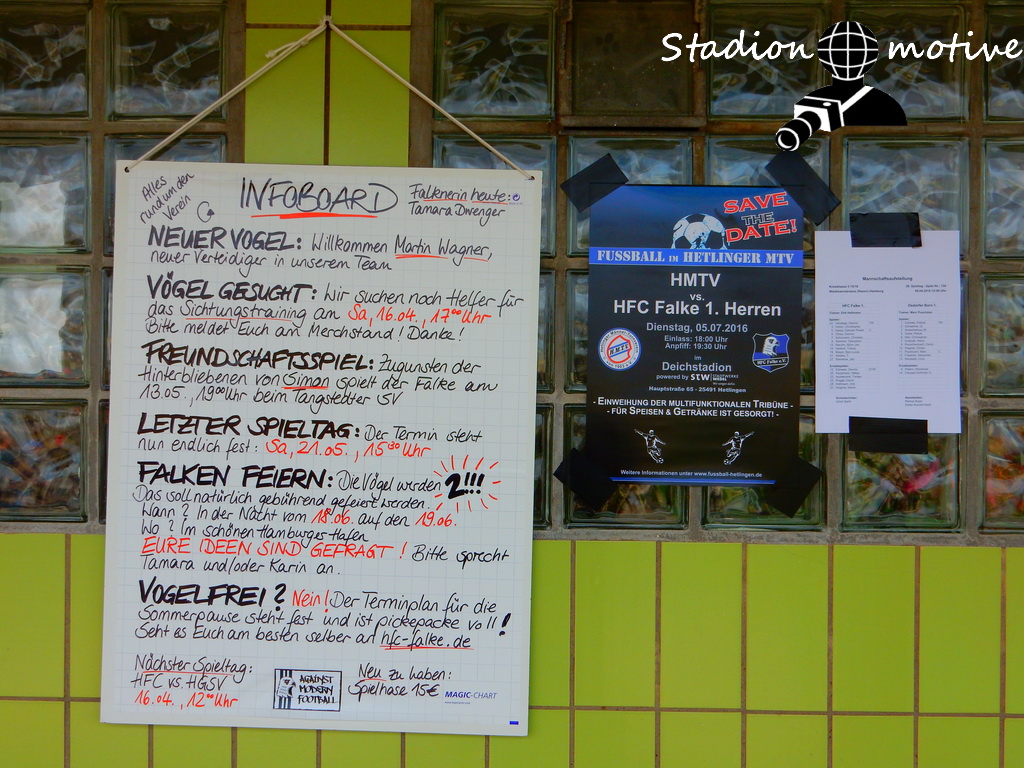 Stadion motive
Alles
rund um den
Verein
INFOBOARD
Falknerin heute:
Tamara Dwenger
NEUER VOGEL: Willkommen Martin Wagner,
neuer Verteidiger in unserem Team
VÖGEL GESUCHT: Wir suchen noch Helfer für
das Sichtungstraining am Sa, 16.04., 17⁰⁰ Uhr
Bitte meldet Euch am Merchstand! Danke!
FREUNDSCHAFTSSPIEL: Zugunsten der
Hinterbliebenen von Simon spielt der Falke am
13.05., 19⁰⁰ Uhr beim Tangstedter SV
LETZTER SPIELTAG: Der Termin steht
nun endlich fest: Sa, 21.05., 15³⁰ Uhr
FALKEN FEIERN: Die Vögel werden 2!!!
Das soll natürlich gebührend gefeiert werden.
Wann? In der Nacht vom 18.06. auf den 19.06.
Wo? Im schönen Hamburger Hafen
EURE IDEEN SIND GEFRAGT! Bitte sprecht
Tamara und/oder Karin an.
VOGELFREI? Nein! Der Terminplan für die
Sommerpause steht fest und ist pickepacke voll!
Seht es Euch am besten selber an hfc-falke.de
Nächster Spieltag:
HFC vs. HGSV
16.04., 12⁰⁰ Uhr
AGAINST
MODERN
FOOTBALL
Neu zu haben:
Spielhase 15€
MAGIC-CHART
SAVE
THE
DATE!
FUSSBALL IM HETLINGER MTV
HMTV
vs.
HFC Falke 1. Herren
Dienstag, 05.07.2016
Einlass: 18:00 Uhr
Anpfiff: 19:30 Uhr
im
Deichstadion
powered by STW STADTWERKE WEDEL
Hauptstraße 65 - 25491 Hetlingen
HMTV
HFC Falke e.V.
- EINWEIHUNG DER MULTIFUNKTIONALEN TRIBÜNE -
- FÜR SPEISEN & GETRÄNKE IST GESORGT! -
Weitere Informationen unter www.fussball-hetlingen.de
Mannschaftsaufstellung
HFC Falke 1.